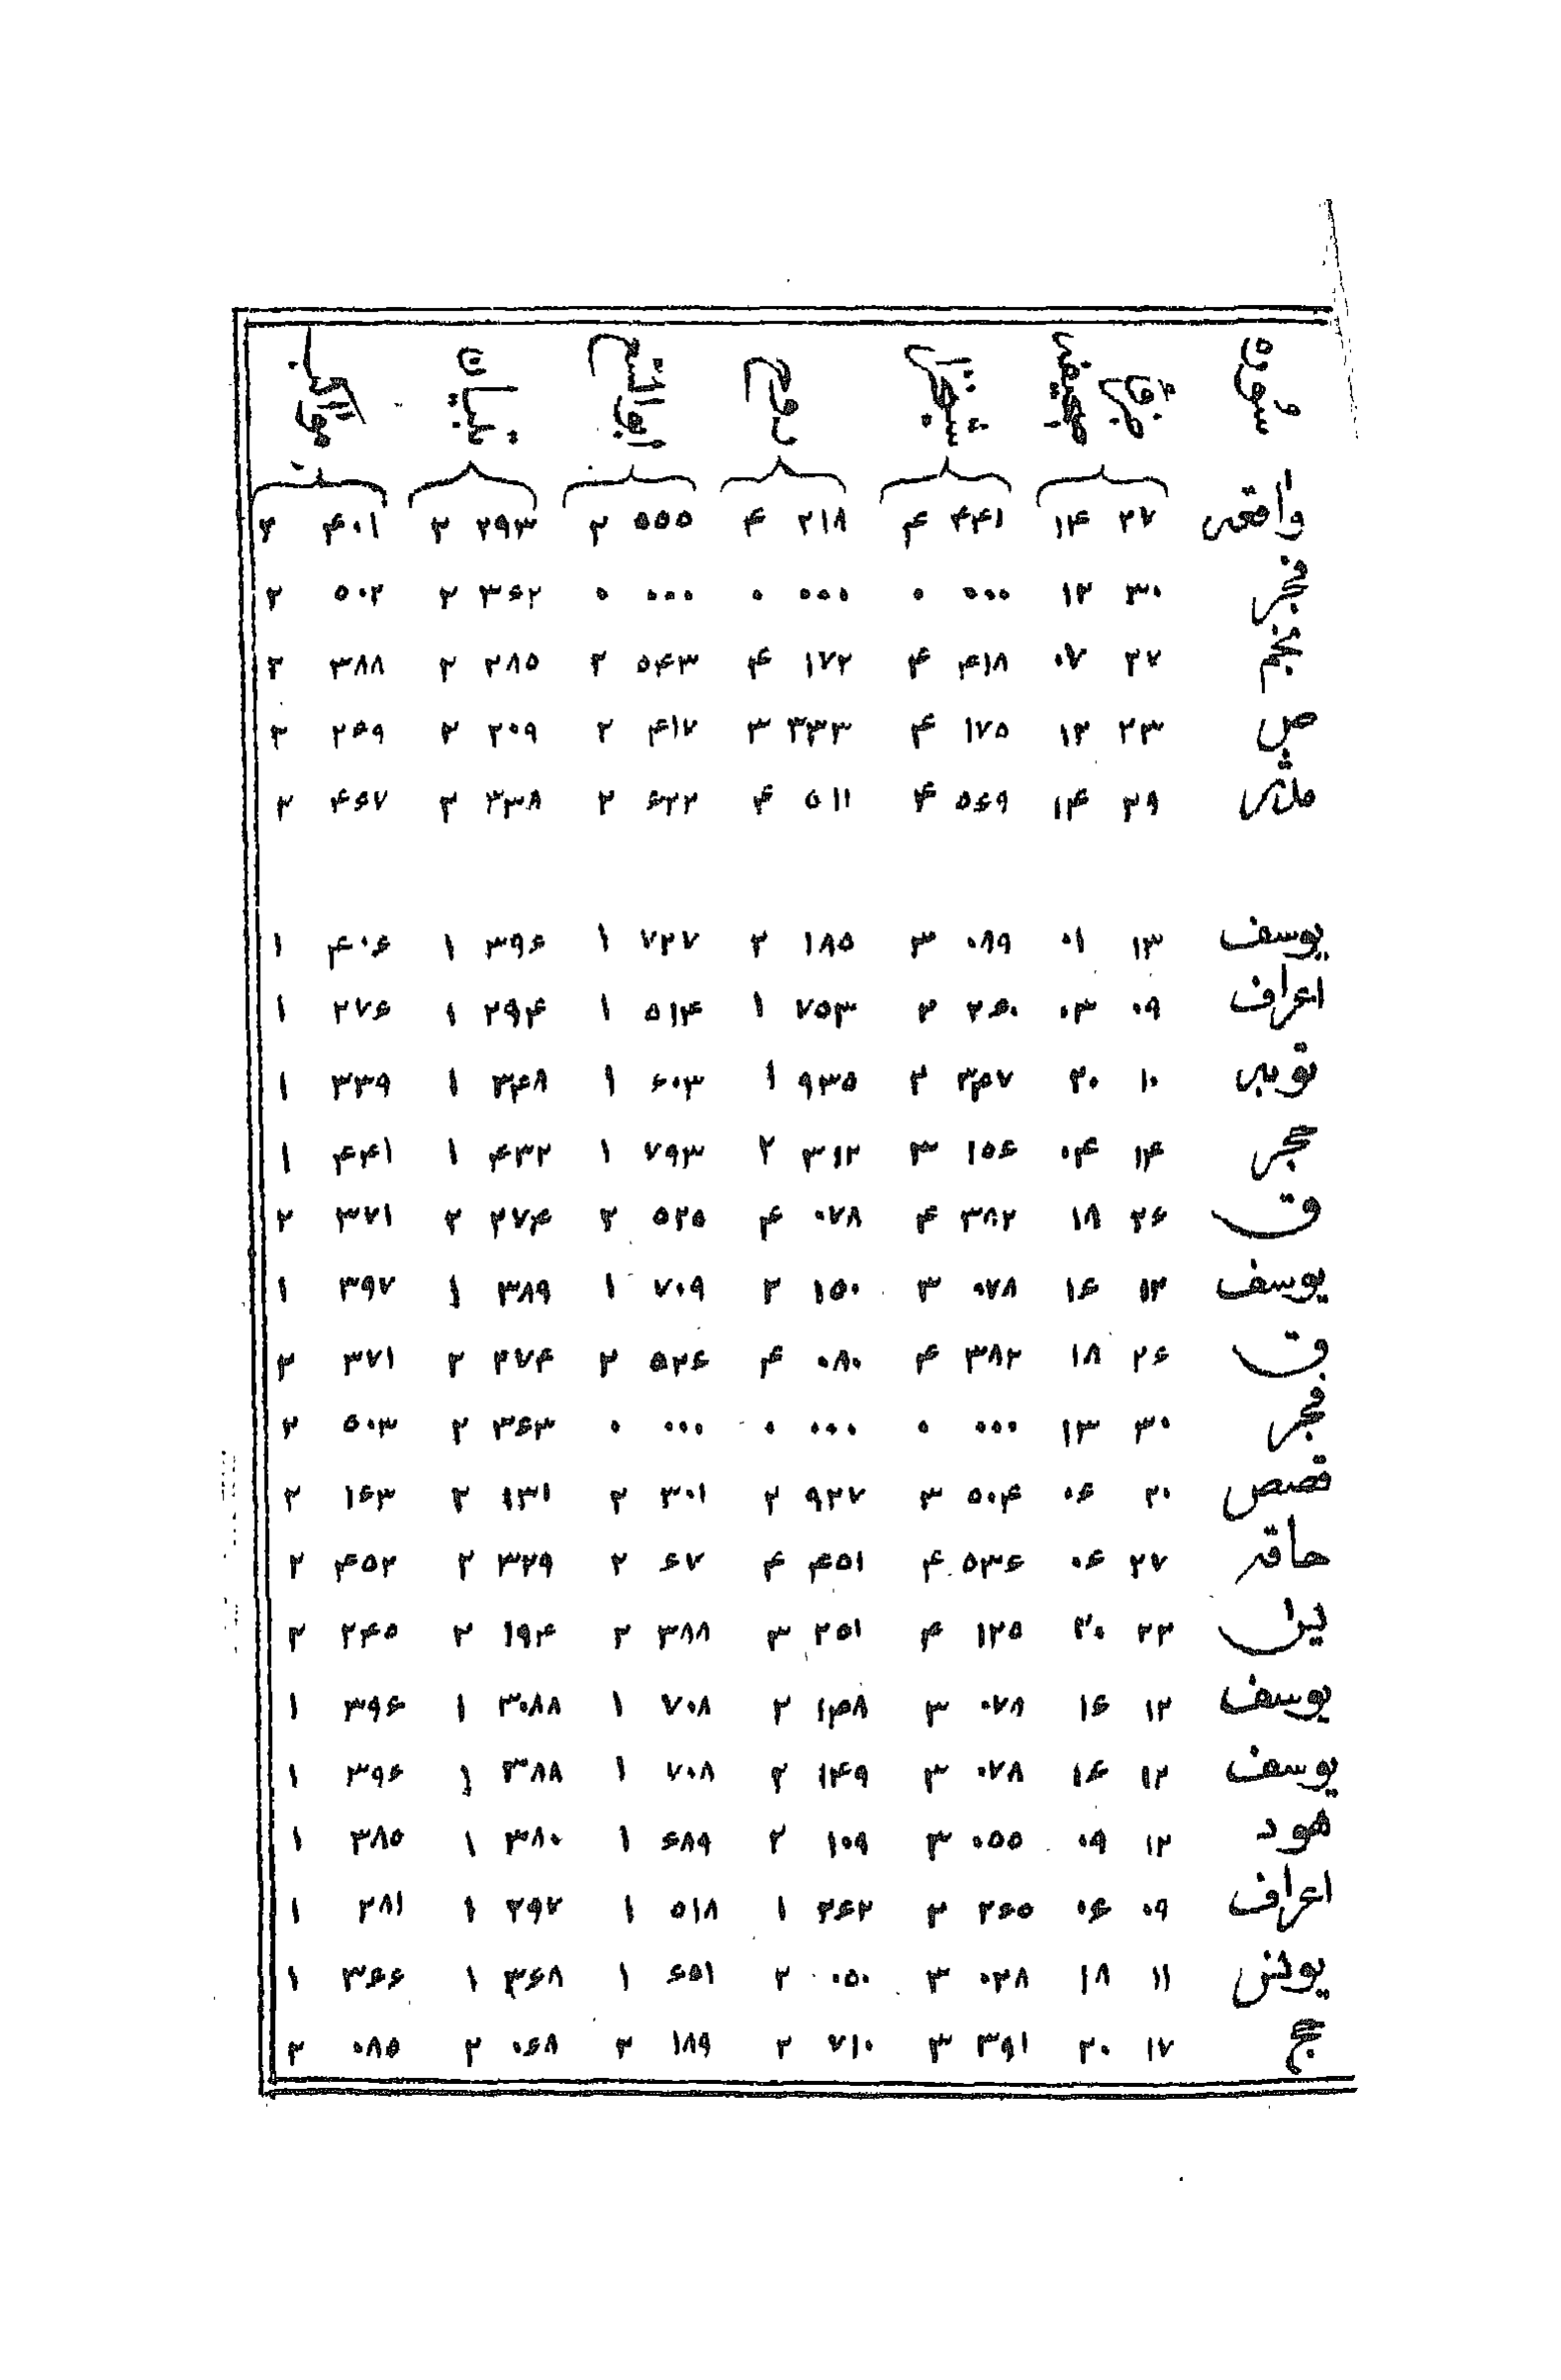 سوره
واقعه ۲۷ ۱۴ ۴۴۱ ۴ ۲۱۸ ۴ ۵۵۵ ۲ ۲۹۳ ۲ ۴۰۱ ۲
فجر ۳۰ ۱۲ ۰۰۰ ۰ ۰۰۰ ۰ ۰۰۰ ۰ ۳۶۲ ۲ ۵۰۲ ۲
نجم ۲۷ ۰۷ ۴۱۸ ۴ ۱۷۲ ۴ ۵۴۳ ۲ ۲۸۵ ۲ ۳۸۸ ۲
ص ۲۳ ۱۲ ۱۷۵ ۴ ۳۳۳ ۳ ۴۱۷ ۲ ۲۰۹ ۲ ۲۶۹ ۲
مدثر ۲۹ ۱۴ ۵۶۹ ۴ ۵۱۱ ۴ ۶۲۲ ۲ ۳۳۸ ۲ ۴۶۷ ۲
یوسف ۱۳ ۰۱ ۰۸۹ ۳ ۱۸۵ ۲ ۷۲۷ ۱ ۳۹۶ ۱ ۴۰۶ ۱
اعراف ۰۹ ۰۳ ۲۶۰ ۲ ۷۵۳ ۱ ۵۱۴ ۱ ۲۹۴ ۱ ۲۷۶ ۱
توبه ۱۰ ۲۰ ۳۴۷ ۲ ۹۳۵ ۱ ۶۰۳ ۱ ۳۴۸ ۱ ۳۳۹ ۱
حجر ۱۴ ۰۴ ۱۵۶ ۳ ۳۱۲ ۲ ۷۹۳ ۱ ۴۳۲ ۱ ۴۴۱ ۱
ق ۲۶ ۱۸ ۳۸۲ ۴ ۰۷۸ ۴ ۵۲۵ ۲ ۲۷۴ ۲ ۳۷۱ ۲
یوسف ۱۲ ۱۶ ۰۷۸ ۳ ۱۵۰ ۲ ۷۰۹ ۱ ۳۸۹ ۱ ۳۹۷ ۱
ق ۲۶ ۱۸ ۳۸۲ ۴ ۰۸۰ ۴ ۵۲۶ ۲ ۲۷۴ ۲ ۳۷۱ ۲
فجر ۳۰ ۱۳ ۰۰۰ ۰ ۰۰۰ ۰ ۰۰۰ ۰ ۳۶۳ ۲ ۵۰۳ ۲
قصص ۲۰ ۰۶ ۵۰۴ ۳ ۹۲۷ ۲ ۳۰۱ ۲ ۱۳۱ ۲ ۱۶۳ ۲
حاقه ۲۷ ۰۶ ۵۳۶ ۴ ۴۵۱ ۴ ۶۷ ۲ ۳۲۹ ۲ ۴۵۲ ۲
۲۳ ۲۰ ۱۲۵ ۴ ۲۵۱ ۳ ۳۸۸ ۲ ۱۹۴ ۲ ۲۴۵ ۲
یوسف ۱۲ ۱۶ ۰۷۸ ۳ ۱۴۸ ۲ ۷۰۸ ۱ ۳۰۸۸ ۱ ۳۹۶ ۱
یوسف ۱۲ ۱۶ ۰۷۸ ۳ ۱۴۹ ۲ ۷۰۸ ۱ ۳۸۸ ۱ ۳۹۶ ۱
هود ۱۲ ۰۹ ۰۵۵ ۳ ۱۰۹ ۲ ۶۸۹ ۱ ۳۸۰ ۱ ۳۸۵ ۱
اعراف ۰۹ ۰۶ ۲۶۵ ۲ ۲۶۲ ۱ ۵۱۸ ۱ ۲۹۷ ۱ ۲۸۱ ۱
یونس ۱۱ ۱۸ ۰۲۸ ۳ ۰۵۰ ۲ ۶۵۱ ۱ ۳۶۸ ۱ ۳۶۶ ۱
حج ۱۷ ۲۰ ۳۹۱ ۳ ۷۱۰ ۲ ۱۸۹ ۲ ۰۶۸ ۲ ۰۸۵ ۲